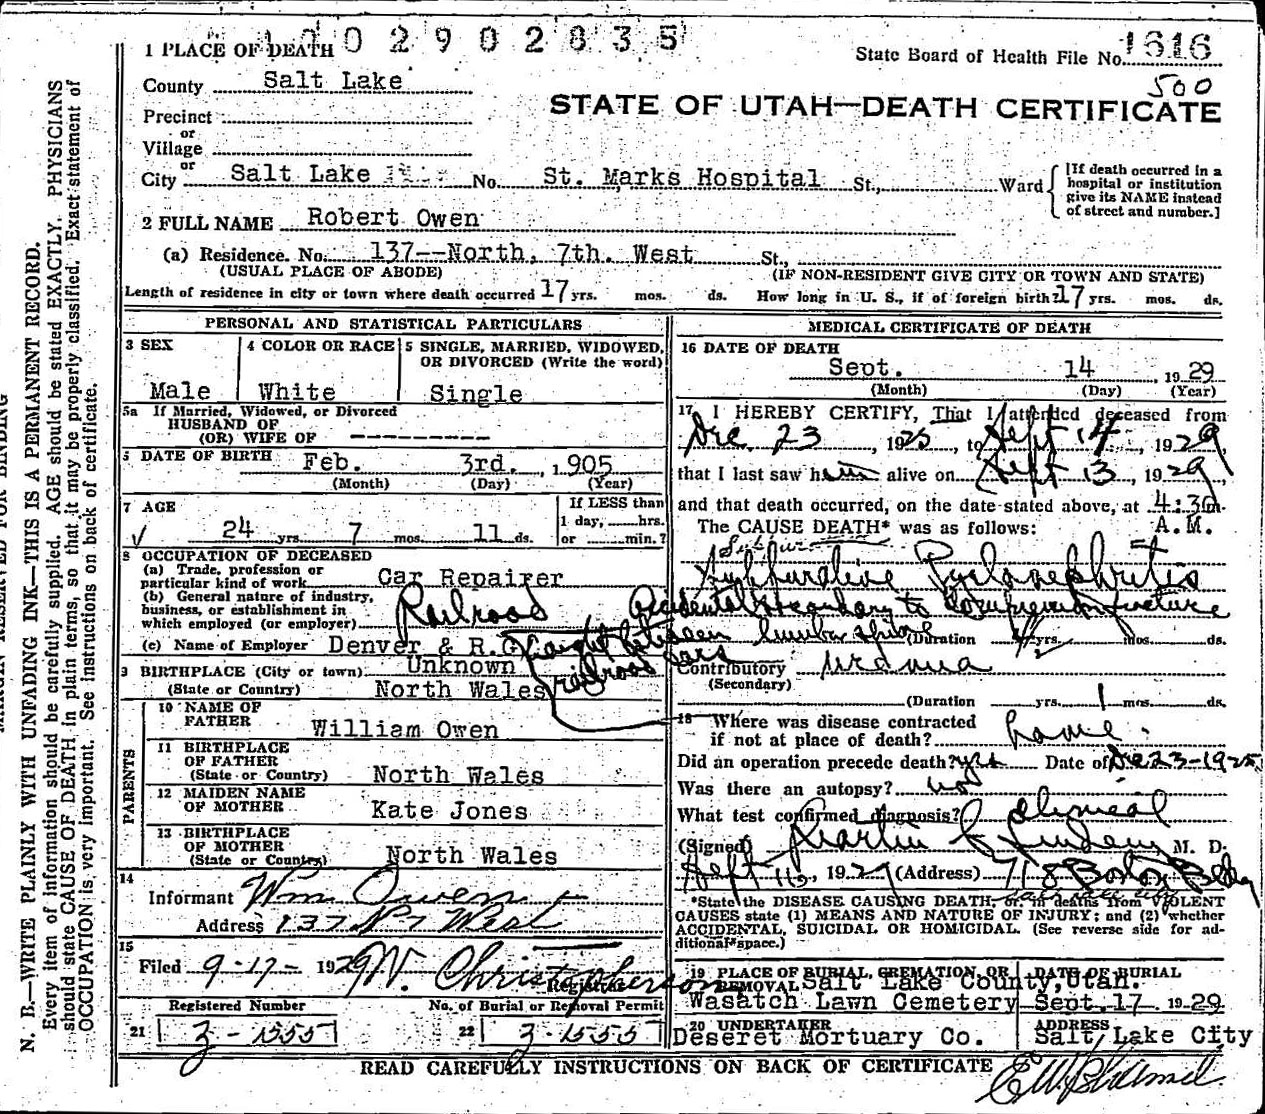 0 0 2 9 0 2 8 3 5
1 PLACE OF DEATH
State Board of Health File No. 1616
County Salt Lake
500
STATE OF UTAH—DEATH CERTIFICATE
Precinct
or
Village
or
City Salt Lake No. St. Marks Hospital St., Ward
[If death occurred in a hospital or institution give its NAME instead of street and number.]
2 FULL NAME Robert Owen
(a) Residence. No. 137--North, 7th. West St.,
(USUAL PLACE OF ABODE) (IF NON-RESIDENT GIVE CITY OR TOWN AND STATE)
Length of residence in city or town where death occurred 17 yrs. mos. ds. How long in U. S., if of foreign birth? 17 yrs. mos. ds.
PERSONAL AND STATISTICAL PARTICULARS
3 SEX
Male
4 COLOR OR RACE
White
5 SINGLE, MARRIED, WIDOWED,
OR DIVORCED (Write the word)
Single
5a If Married, Widowed, or Divorced
HUSBAND OF
(OR) WIFE OF ----------
DATE OF BIRTH Feb. 3rd. , 1905
(Month) (Day) (Year)
7 AGE
If LESS than
1 day, hrs.
or min.?
24 yrs. 7 mos. 11 ds.
8 OCCUPATION OF DECEASED
(a) Trade, profession or
particular kind of work Car Repairer
(b) General nature of industry,
business, or establishment in
which employed (or employer) Railroad
(c) Name of Employer Denver & R.G.
9 BIRTHPLACE (City or town) Unknown
(State or Country) North Wales
PARENTS
10 NAME OF
FATHER William Owen
11 BIRTHPLACE
OF FATHER
(State or Country) North Wales
12 MAIDEN NAME
OF MOTHER Kate Jones
13 BIRTHPLACE
OF MOTHER
(State or Country) North Wales
14
Informant Wm Owen
Address 137 N 7 West
15
Filed 9-17- 1929 W. Christopherson
Registrar
Registered Number
21 3-1555
No. of Burial or Removal Permit
22 3-1555
MEDICAL CERTIFICATE OF DEATH
16 DATE OF DEATH
Sept. 14 , 1929
(Month) (Day) (Year)
17 I HEREBY CERTIFY, That I attended deceased from
Dec. 23 , 1925, to Sept 14 , 1929
that I last saw him alive on Sept 13 , 1929
and that death occurred, on the date stated above, at 4:30 m.
The CAUSE DEATH* was as follows: A.M.
Suppurative Pyelonephritis
Accidental secondary to compression fracture
lumbar spine
caught between
railroad cars
(Duration yrs. mos. ds.
Contributory uremia
(Secondary)
(Duration yrs. 1 mos. ds.
18 Where was disease contracted
if not at place of death? home.
Did an operation precede death? yes Date of Dec 23-1925
Was there an autopsy? no
What test confirmed diagnosis? clinical
(Signed) Martin C Lindem M. D.
Sept 16, 1929 (Address) 718 Boston Bldg
*State the DISEASE CAUSING DEATH, or in deaths from VIOLENT
CAUSES state (1) MEANS AND NATURE OF INJURY; and (2) whether
ACCIDENTAL, SUICIDAL OR HOMICIDAL. (See reverse side for ad-
ditional space.)
19 PLACE OF BURIAL, CREMATION, OR
REMOVAL Salt Lake County, Utah.
Wasatch Lawn Cemetery
DATE OF BURIAL
Sept. 17 1929
20 UNDERTAKER
Deseret Mortuary Co.
ADDRESS
Salt Lake City
READ CAREFULLY INSTRUCTIONS ON BACK OF CERTIFICATE
MARGIN RESERVED FOR BINDING
N. B.—WRITE PLAINLY WITH UNFADING INK—THIS IS A PERMANENT RECORD.
Every item of information should be carefully supplied. AGE should be stated EXACTLY. PHYSICIANS
should state CAUSE OF DEATH in plain terms, so that it may be properly classified. Exact statement of
OCCUPATION is very important. See instructions on back of certificate.